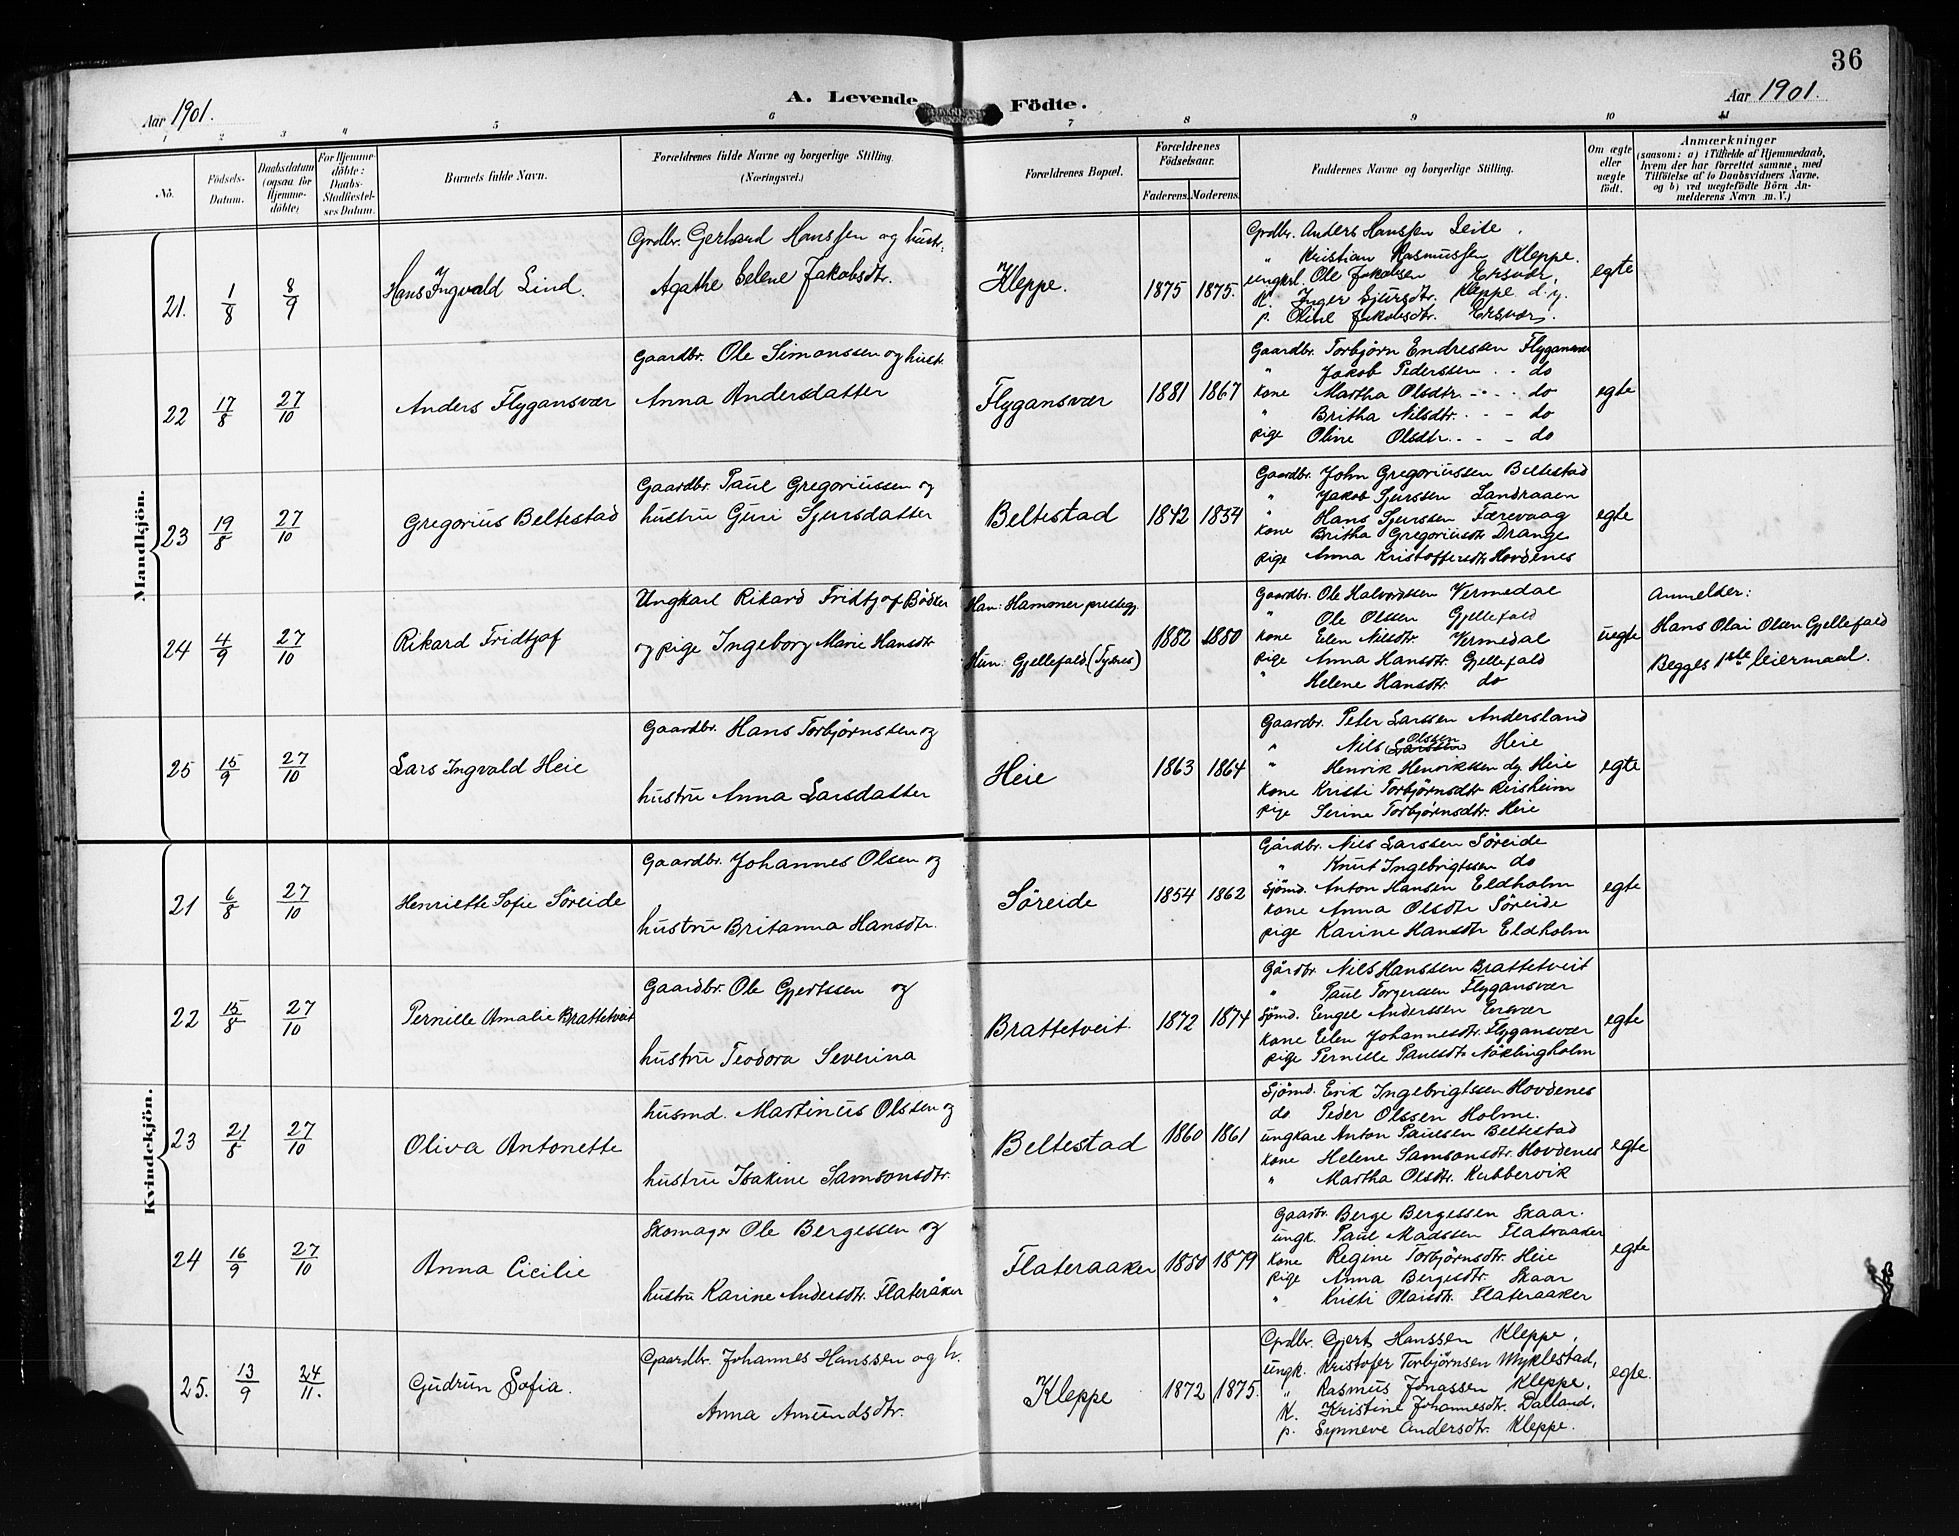 36
Aar 1901.
A. Levende Födte.
Aar 1901.
1 2 3 4 5 6 7 8 9 10 11
No.
Födsels-Datum.
Daabsdatum (ogsaa for Hjemme-döbte)
For Hjemme-döbte: Daabs-Stadfæstel-ses Datum.
Barnets fulde Navn.
Forældrenes fulde Navne og borgerlige Stilling. (Næringsvei.)
Forældrenes Bopæl.
Forældrenes Födselsaar.
Faderens. Moderens.
Faddernes Navne og borgerlige Stilling.
Om ægte eller uægte födt.
Anmærkninger
(saasom: a) i Tilfælde af Hjemmedaab,
hvem der har forrettet samme, med
Tilföielse af to Daabsvidners Navne,
og b) ved uægtefödte Börn An-
melderens Navn m. V.)
Mandkjön.
21. 1/8 8/9 Hans Ingvald Lind.
Grdbr. Gerhard Hanssen og hust.
Agathe Selene Jakobsdtr.
Kleppe. 1875 1875.
Grdbr. Anders Hanssen Leite.
" Kristian Rasmussen Kleppe.
ungkrl. Ole Jakobsen Ersvær.
K. Inger Sjursdtr. Kleppe d.y.
p. Oline Jakobsdtr. Ersvær.
egte
22 17/8 27/10 Anders Flygansvær
Gaardbr. Ole Simonssen og hust.
Anna Andersdatter
Flygansvær 1881 1867
Gaardbr. Torbjørn Endressen Flygansvær
" Jakob Pederssen .. do
kone Martha Olsdtr. - - . do
" Britha Nilsdtr. . - - do
pige Oline Olsdtr. . - - do
egte
23 19/8 27/10 Gregorius Beltestad
Gaardbr. Paul Gregoriussen og
hustru Guri Sjursdatter
Beltestad 1842 1834
Gaardbr. John Gregoriussen Beltestad
" Jakob Sjurssen Landraaen
" Hans Sjurssen Færevaag
kone Britha Gregoriusdtr Drange
pige Anna Kristoffersdtr Hovdenes
egte
24 4/9 27/10 Rikard Fridtjof
Ungkarl Rikard Fridtjof Bödker
og pige Ingeborg Marie Hansdtr
Han: Hammer prestegj.
Hun: Gjellefald (Tysnes)
1882 1880
Gaardbr. Ole Halvorssen Vermedal
" Ole Olsen Gjellefald
kone Elen Nilsdtr. Vermedal
pige Anna Hansdtr. Gjellefald
" Helene Hansdtr. do
uegte
Anmelder:
Hans Olai Olsen Gjellefald
Begges 1ste leiermaal.
25 15/9 27/10 Lars Ingvald Heie
Gaardbr. Hans Torbjørnssen og
hustru Anna Larsdatter
Heie 1863 1864
Gaardbr. Peter Larssen Andersland
" Nils Larssen Olssen Heie
" Henrik Henrikssen dy Heie
kone Kristi Torbjørnsdtr Reisheim
pige Serine Torbjørnsdtr. Heie
egte
Kvindekjön.
21 6/8 27/10 Henriette Sofie Søreide
Gaardbr. Johannes Olsen og
hustru Britanna Hansdtr.
Søreide 1854 1862
Gårdbr. Nils Larssen Søreide
" Knut Ingebrigtssen do
Sjömd. Anton Hansen Eldholm
kone Anna Olsdtr Søreide
pige Karine Hansdtr Eldholm
egte
22 15/8 27/10 Pernille Amalie Brattetveit
Gaardbr. Ole Gjertssen og
hustru Teodora Severina
Brattetveit 1872 1874
Gårdbr. Nils Hanssen Brattetveit
" Paul Torgerssen Flygansvær
Sjömd. Engel Anderssen Ersvær
kone Elen Johannesdtr. Flygansvær
pige Pernille Paulsdtr Nöklingholm
egte
23 21/8 27/10 Oliva Antonette
husmd. Martinus Olsen og
hustru Isakine Samsonsdtr.
Beltestad 1860 1861
Sjömd. Erik Ingebrigtssen Hovdenes
do Peder Olssen Holme.
ungkare Anton Paulsen Beltestad
kone Helene Samsonsdtr. Hovdenes
" Martha Olsdtr. Kubbervik
egte
24 16/9 27/10 Anna Cicilie
Skomager Ole Bergessen og
hustru Karine Andersdtr. Flateråker
Flateraaker 1880 1879
Gaardbr. Berge Bergessen Skaar.
ungk. Paul Madssen Flateraaker
kone Regine Torbjørnsdtr. Heie
pige Anna Bergesdtr. Skaar
" Kristi Olaisdtr. Flateraaker
egte
25. 13/9 24/11. Gudrun Sofia.
Gaardbr. Johannes Hanssen og h.
Anna Amundsdtr.
Kleppe 1872 1875.
Grdbr. Gjert Hanssen Kleppe,
ungk. Kristofer Torbjørnsen Myklestad,
" Rasmus Jonassen Kleppe,
K. Kristine Johannesdtr. Dalland,
p. Synneve Andersdtr. Kleppe.
egte.